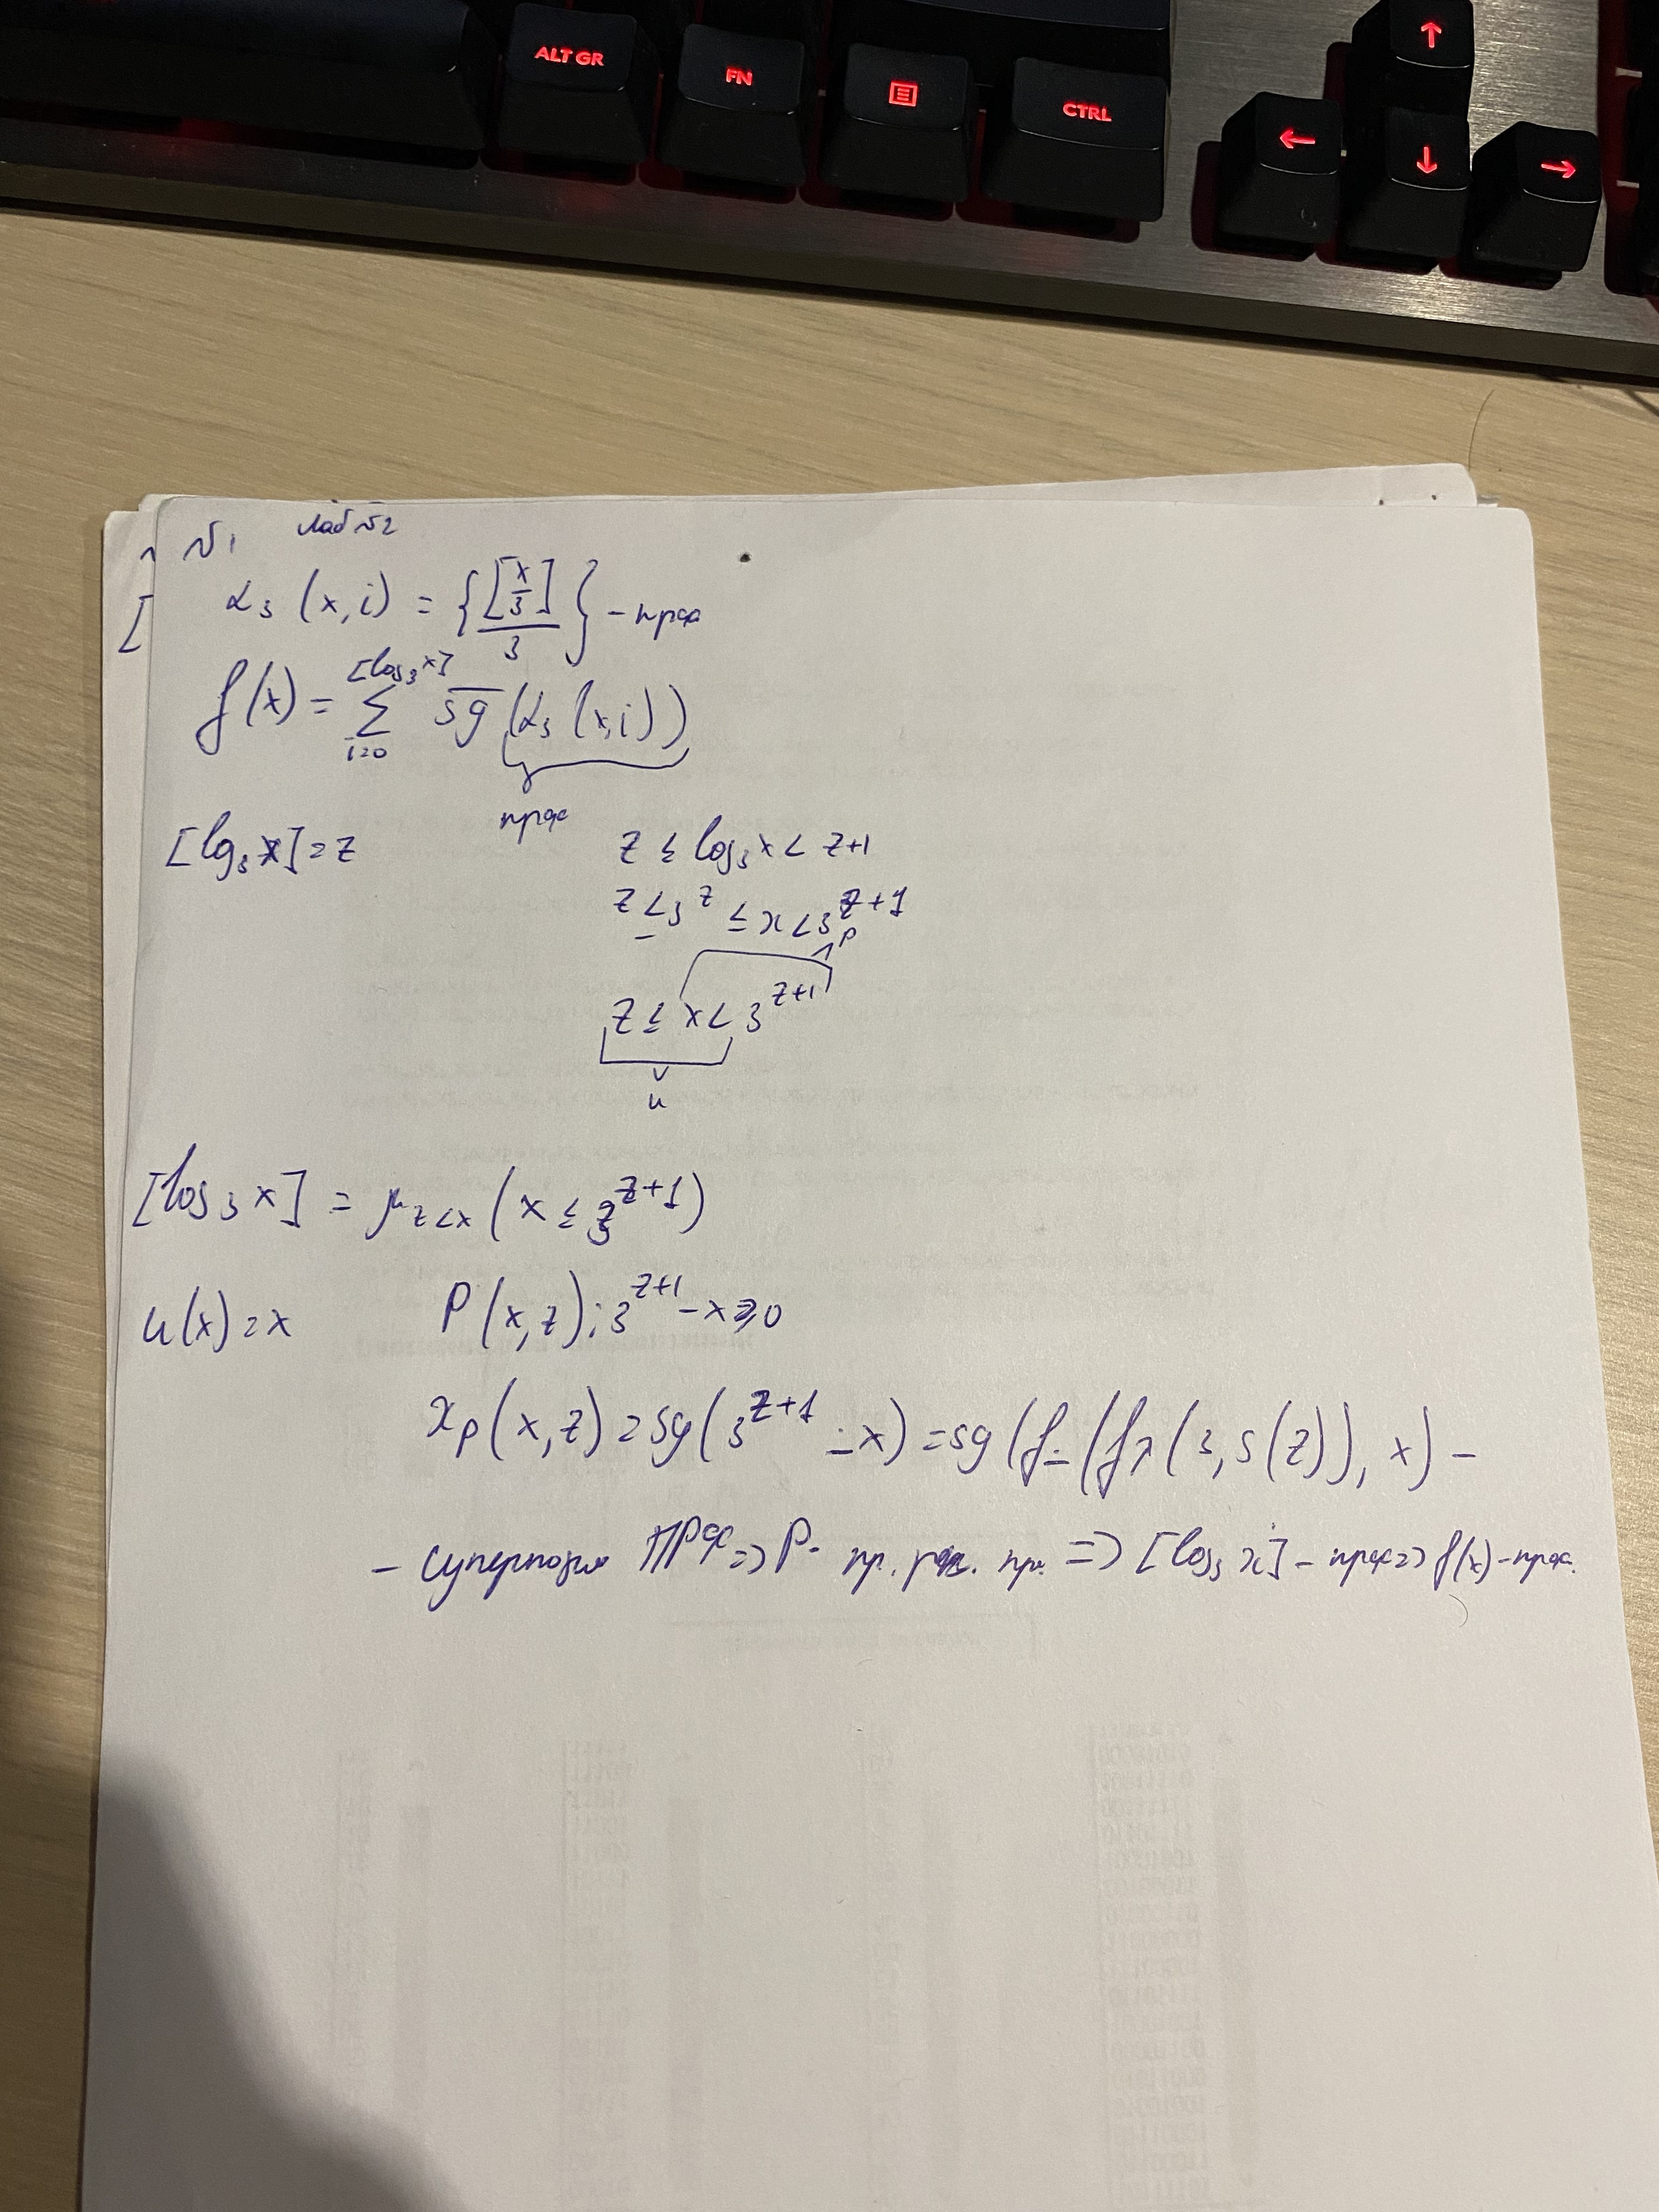 ALT GR FN CTRL
↑
← ↓ →
№1 Лаб №2
α₃ (x, i) = {[x/3]/3} - прф
f(x) = Σ_{i=0}^{[log₃ x]} \overline{sg} (α₃ (x, i))
прф
[lg₃ x] = z
z ≤ log₃ x < z+1
z ≤ 3^z ≤ x < 3^{z+1}
P
z ≤ x < 3^{z+1}
u
[log₃ x] = μ_{z<x} (x ≤ 3^{z+1})
u(x) = x P(x, z): 3^{z+1} - x ≥ 0
χ_P (x, z) = sg(3^{z+1} ∸ x) = sg(f_∸ (f_λ (3, s(z)), x) -
- суперпозиц ПРФ => P - пр. рек. пр. => [log₃ x] - прф => f(x) - прф.